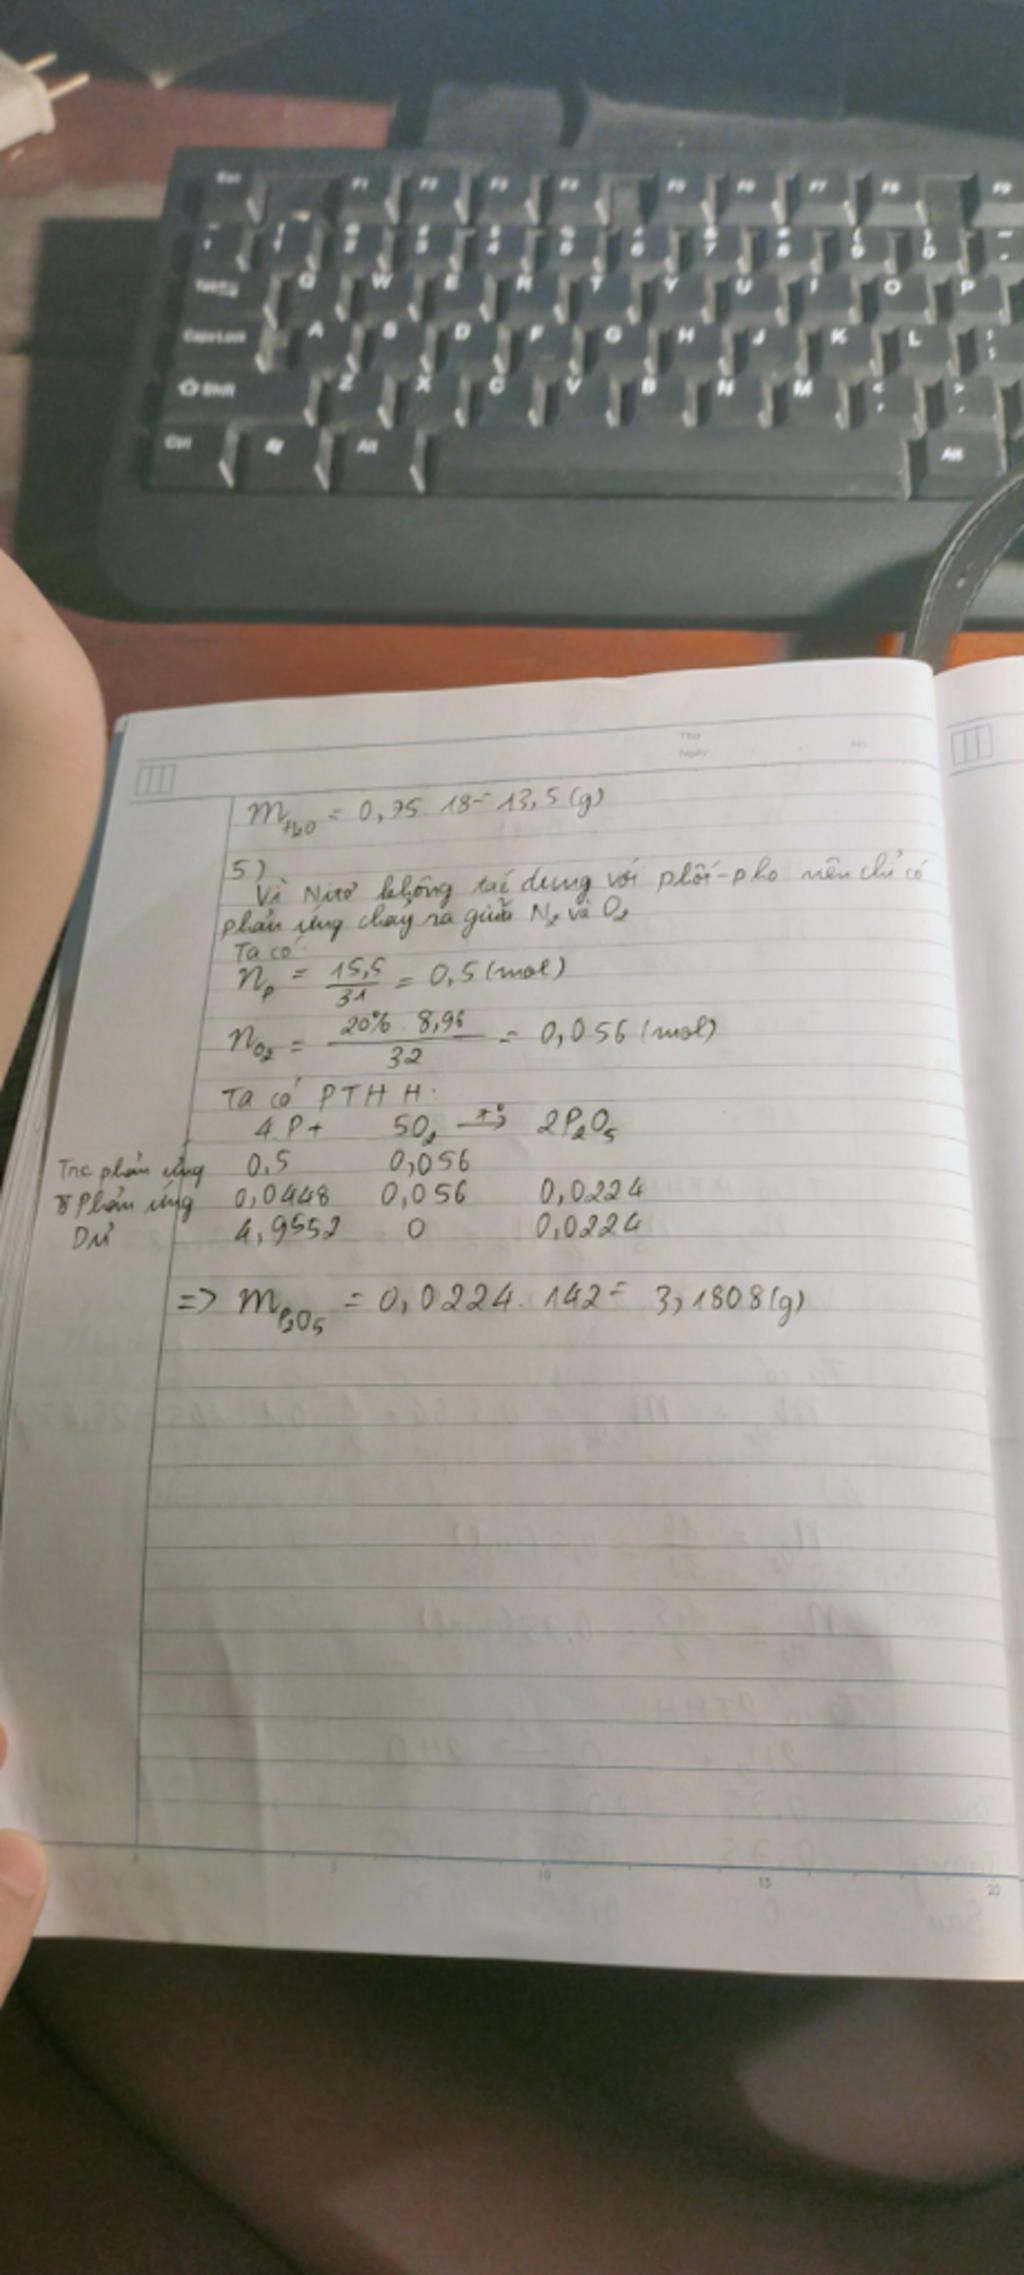 Esc F1 F2 F3 F4 F5 F6 F7 F8 F9
Q W E R T Y U I O P
Caps Lock A S D F G H J K L
Shift Z X C V B N M
Ctrl Alt Alt
Thứ
Ngày No
m H₂O = 0,75. 18 = 13,5 (g)
5)
Vì Nitơ không tác dụng với phốt-pho nên chỉ có
phản ứng chảy ra giữa N₂ và O₂
Ta có:
nP = 15,5/31 = 0,5 (mol)
nO₂ = 20% . 8,96/32 = 0,056 (mol)
Ta có PTHH:
4P + 5O₂ t°→ 2P₂O₅
Trc phản ứng 0,5 0,056
Phản ứng 0,0448 0,056 0,0224
Dư 4,9552 0 0,0224
=> mP₂O₅ = 0,0224. 142 = 3,1808 (g)
5 10 15 20